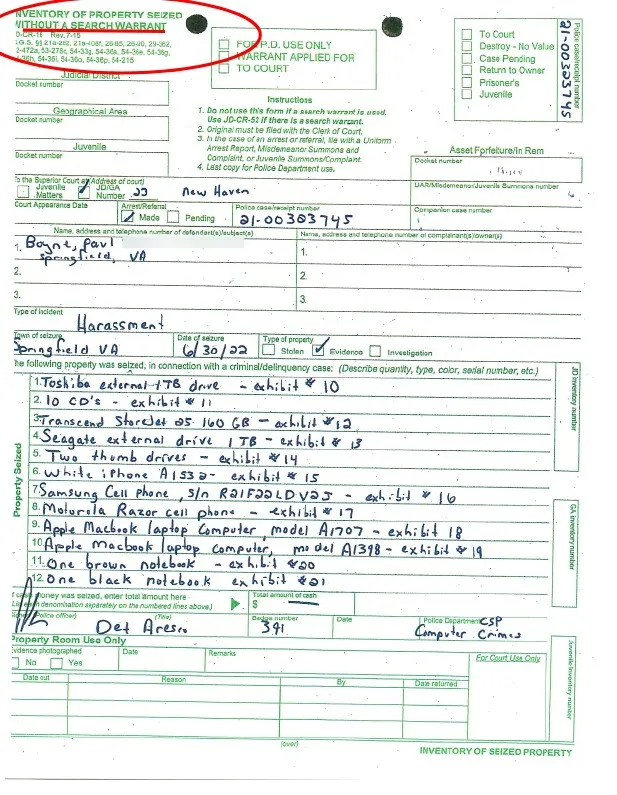 NVENTORY OF PROPERTY SEIZED
WITHOUT A SEARCH WARRANT
D-CR-18 Rev. 7-15
FOR P.D. USE ONLY
WARRANT APPLIED FOR
TO COURT
To Court
Destroy - No Value
Case Pending
Return to Owner
Prisoner's
Juvenile
Police case/receipt number
21-00323745
Judicial District
Docket number
Geographical Area
Docket number
Juvenile
Docket number
Instructions
1. Do not use this form if a search warrant is used.
Use JD-CR-52 if there is a search warrant.
2. Original must be filed with the Clerk of Court.
3. In the case of an arrest or referral, file with a Uniform
Arrest Report, Misdemeanor Summons and
Complaint, or Juvenile Summons/Complaint.
4. Last copy for Police Department use.
Asset Forfeiture/In Rem
Docket number
UAR/Misdemeanor/Juvenile Summons number
Companion case number
To the Superior Court at (Address of court)
Juvenile Matters
JD/GA Number 23 New Haven
Court Appearance Date
Arrest/Referral
Made
Pending
Police case/receipt number
21-00323745
Name, address and telephone number of defendant(s)/subject(s)
1. Boyne, Paul
Springfield, VA
2.
3.
Name, address and telephone number of complainant(s)/owner(s)
1.
2.
3.
Type of incident
Harassment
Town of seizure
Springfield VA
Date of seizure
6/30/22
Type of property
Stolen
Evidence
Investigation
he following property was seized, in connection with a criminal/delinquency case: (Describe quantity, type, color, serial number, etc.)
Property Seized
1. Toshiba external 1TB drive - exhibit # 10
2. 10 CD's - exhibit # 11
3. Transcend StoreJet 25 160 GB - exhibit # 12
4. Seagate external drive 1 TB - exhibit # 13
5. Two thumb drives - exhibit # 14
6. White iPhone A1532 - exhibit # 15
7. Samsung Cell phone, s/n R21F22LDV2J - exhibit # 16
8. Motorola Razor cell phone - exhibit # 17
9. Apple Macbook laptop Computer, model A1707 - exhibit 18
10. Apple Macbook laptop Computer, model A1398 - exhibit # 19
11. One brown notebook - exhibit #20
12. One black notebook exhibit #21
JD inventory number
GA inventory number
Juvenile inventory number
f cash money was seized, enter total amount here -
denomination separately on the numbered lines above.)
Total amount of cash
$
(Police officer)
(Title)
Det Aresco
Badge number
391
Date
Police Department
CSP
Computer Crimes
Property Room Use Only
vidence photographed
No
Yes
Date
Remarks
For Court Use Only
Date out
Reason
By
Date returned
(over)
INVENTORY OF SEIZED PROPERTY